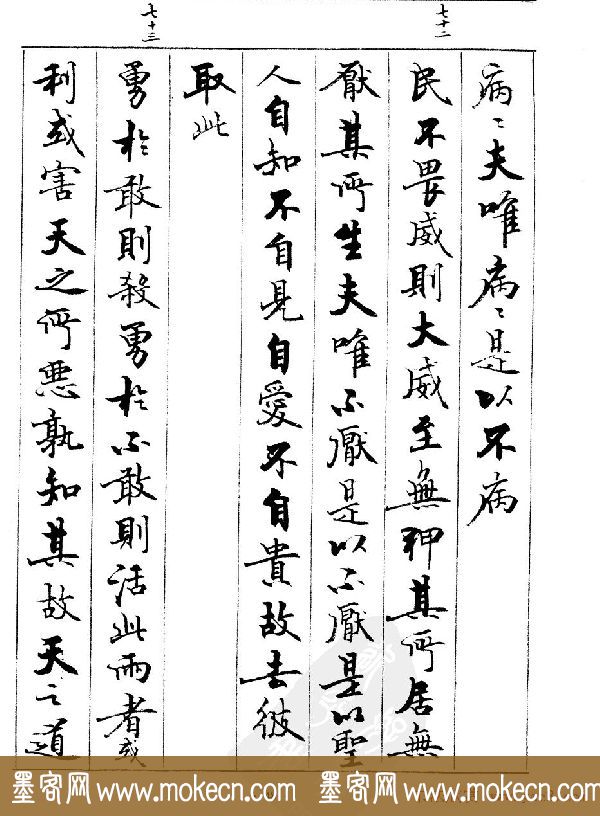 七十二
七十三
病〻夫唯病〻是以不病
民不畏威則大威至無狎其所居無
厭其所生夫唯不厭是以不厭是以聖
人自知不自見自愛不自貴故去彼
取此
勇於敢則殺勇於不敢則活此兩者或
利或害天之所惡孰知其故天之道
墨客网 www.mokecn.com 墨客网 www.mokecn.com